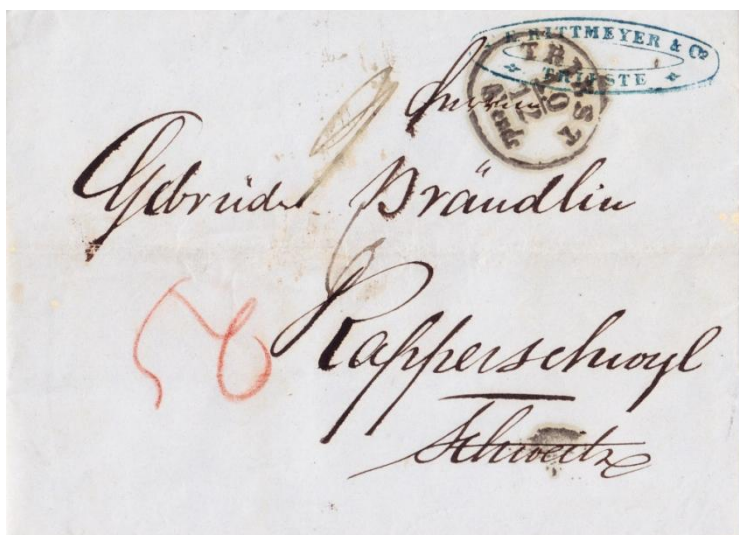 RITTMEYER & Cº
TRIESTE
TRIEST
10
12
Abends
Herren
Gebrüder Brändlin
Rapperschwyl
Schweitz